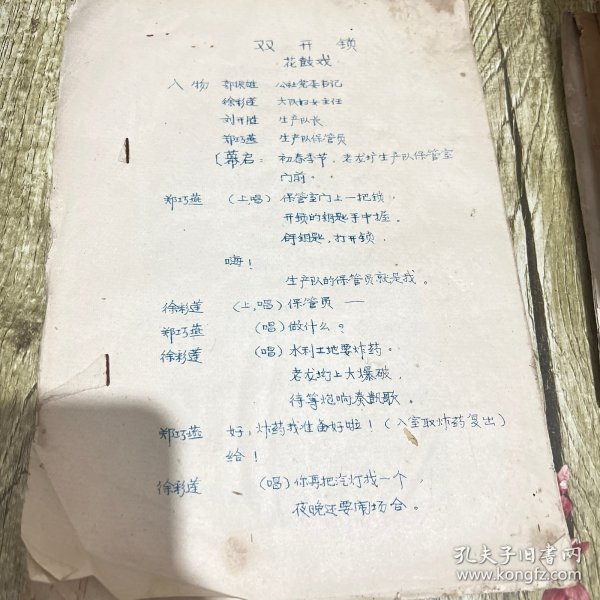 双开锁
花鼓戏
人物 雄 公社党委书记
徐彩莲 大队妇女主任
刘开胜 生产队长
郑巧燕 生产队保管员
〔幕启：初春季节，老龙圩生产队保管室
门前。
郑巧燕 （上，唱）保管室门上一把锁，
开锁的钥匙手中握，
钥匙，打开锁，
嗨！
生产队的保管员就是我。
徐彩莲 （上，唱）保管员——
郑巧燕 （唱）做什么？
徐彩莲 （唱）水利工地要炸药。
老龙圩上大爆破，
待等炮响奏凯歌。
郑巧燕 好，炸药我准备好啦！（入室取炸药复出）
给！
徐彩莲 （唱）你再把汽灯找一个，
夜晚还要闹场合。
孔夫子旧书网
www.kongfz.com